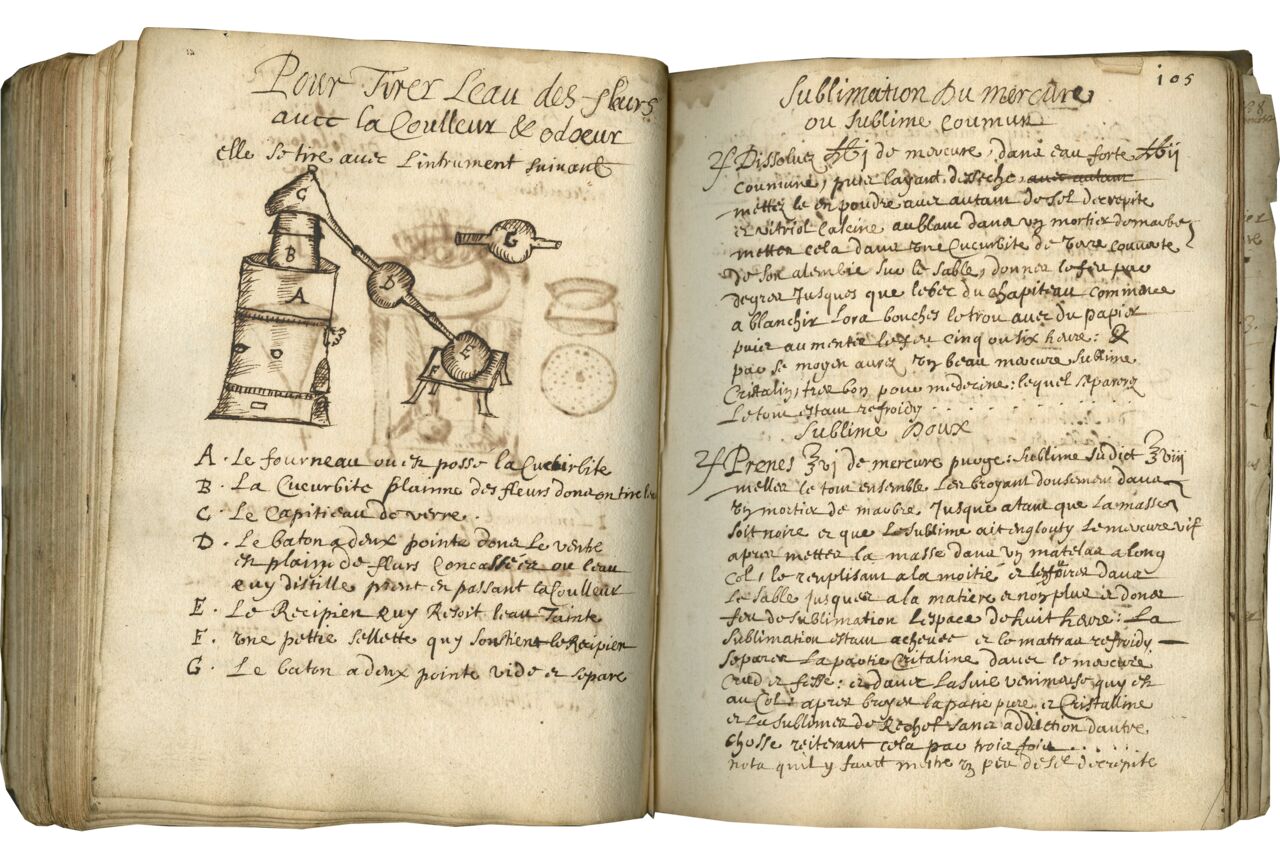 Pour Tirer Leau des fleurs
avec la Coulleur & odoeur
elle se tire avec Lintrument suivant
C
B
A
D
G
E
F
A. Le fourneau ou est posse la Cucurbite
B. La Cucurbite plainne des fleurs dont on tire
C. Le Capitieau de verre.
D. Le baton a deux pointe dont Le ventre
est plain de fleurs Concassées ou leau
quy distille prent en passant la Coulleur
E. Le Recipien quy Resoit leau Tainte
F. une pettie sellette quy soustient le Recipien
G. Le baton a deux pointe vide et separe
105
Sublimation Du mercure
ou sublime Coumun
Dissolvez ℔j de mercure, dans eau forte ℔ij
Coumune, puis layant desseche avec autant
mettez le en poudre avec autam de sel decrepite
et vitriol calcine au blanc dans un mortier de marbre
metter cela dans une Cucurbite de tare couverte
de son alembic sur le sable, donner le feu par
degrez Jusques que le bec du Chapiteau commence
a blanchir Lors bouches le trou avec du papier
puis aumenter le feu cinq ou six heure: &
par se moyen aurez un beau mercure sublime
Cristalin, tres bon pour medecine: lequel separerez
Le tout estant refroidy
Sublime Doux
Prenes ℥vj de mercure purge: sublime sudict ℥viij
mettes le tout ensemble Les broyant dousement dans
un mortier de marbre Jusque a tant que la masse
soit noire et que Le sublime ait englouty Le mercure vif
apres metter la masse dans un matelas a long
Col, le remplisant a la moitié et dans
Le sable jusques a la matiere et non plus et doner
feu de sublimation Lespace de huit heure: La
sublimation estant achevée et le matras refroidy
separer La partie Cristaline davec le mercure
et davec la suie venimeuse quy est
au Col: apres broyer la patie pure et Cristalline
et La sublimer de Rechef sans addiction dautre
Chosse reiterant cela par trois fois
nota quil y faut metre un peu de sel decrepite